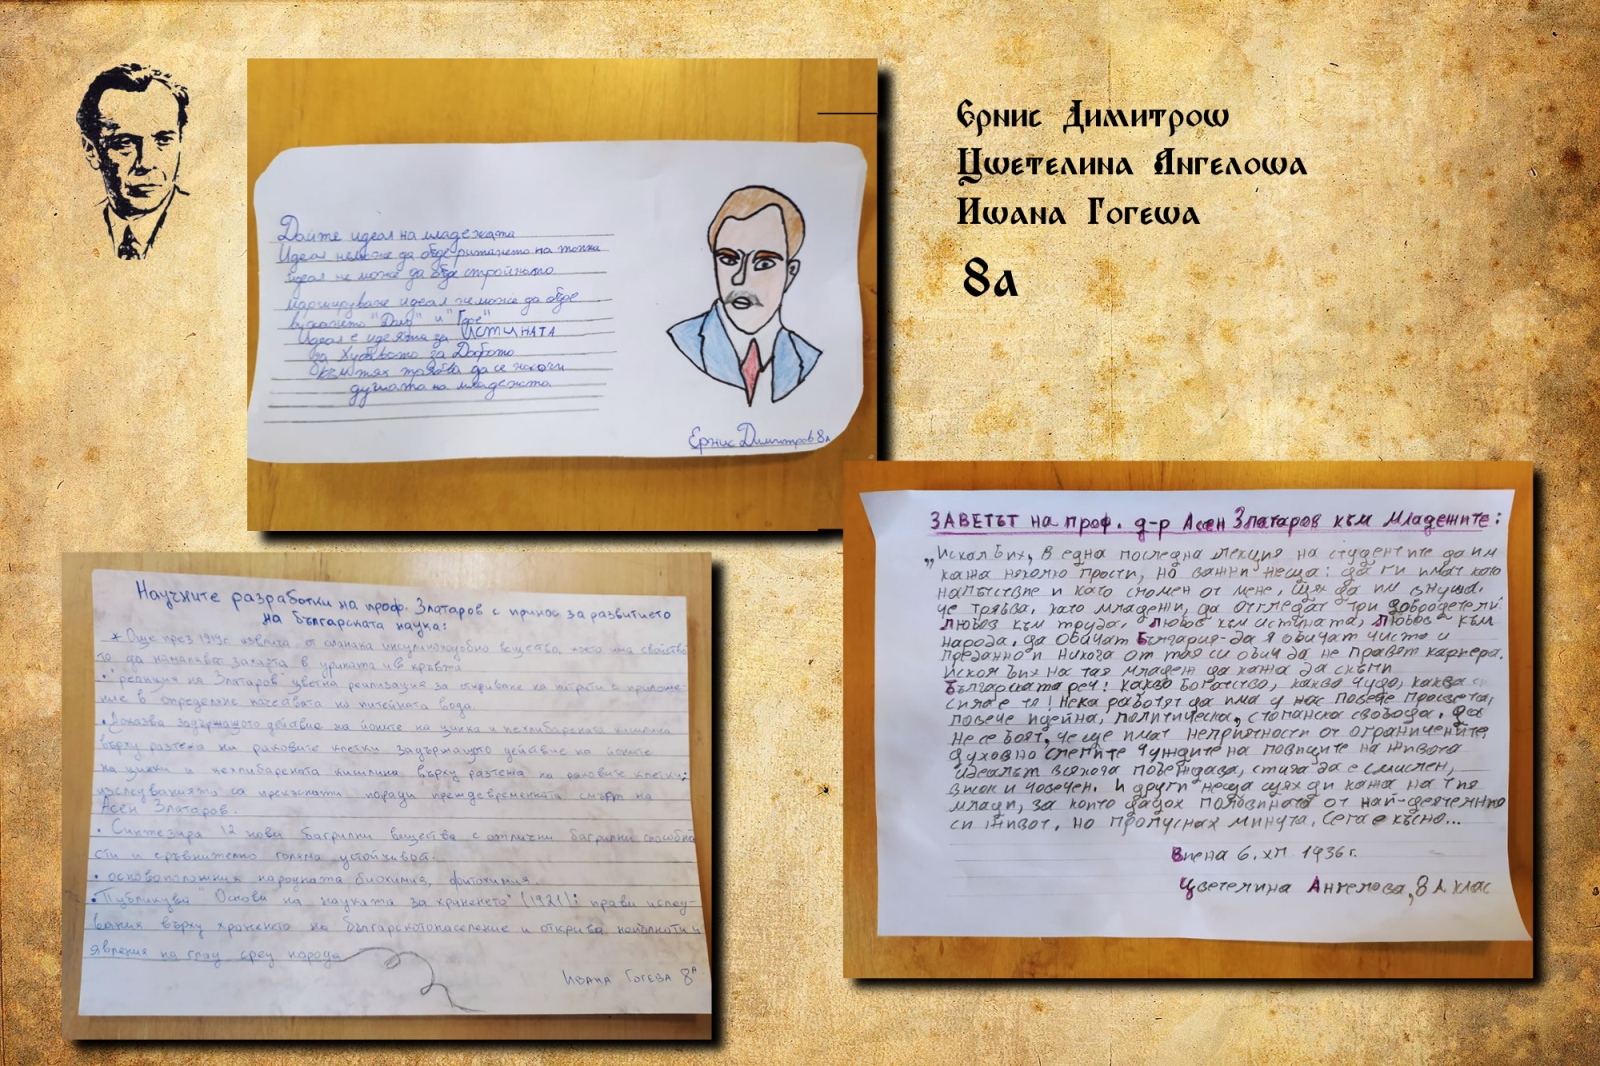 Ернис Димитрош
Цшетелина Ангелоша
Ишана Гогеша
8а
Дайте идеал на младежката
Идеал неможе да бъде ритането на топка
идеал не може да бъде стройното
марширување идеал неможе да бъде
викането "Долу" и "Горе"
Идеал е идеята за ИСТИНАТА
за Хубавото за Доброто
към тях трябва да се насочи
душата на младежта
Ернис Димитров 8а
ЗАВЕТЪТ на проф. д-р Асен Златаров към Младежите:
„Искал Бих, в една последна лекция на студентите да им
кажа няколко прости, но важни неща: да ги имат като
напътствие и като спомен от мене, Щях да им внуша,
че трябва, като младежи, да отгледат три добродетели:
Любов към труда, Любов към истината, Любов към
народа, да обичат България-да я обичат чисто и
преданно и никога от тая си обич да не правят кариера.
Искол Бих на тая младеж да кажа да скъпи
Българската реч: какво Богатство, какво Чудо, каква
сила е тя! Нека работят да има у нас повече просвета,
повече идейна, политическа, стопанска свобода. Да
не се боят, че ще имат неприятности от ограничените
духовно слепите Чуждите на повиците на живота
Идеалът всякога побеждава, стига да е смислен,
висок и човечен. И други неща щях ди кажа на тия
млади, за които дадох половината от най-деятелния
си живот, но пропуснах минута. Сега е късно...
Виена 6. XII 1936 г.
Цветелина Ангелова, 8 А клас
Научните разработки на проф. Златаров с принос за развитието
на българската наука:
* Още през 1919г. извлича от спанака инсулиноподобно вещество, което има свойство
то да намалява захарта в урината и в кръвта
• "реакция на Златаров" цветна реализация за откриване на нитрати с приложе-
ние в определяне качествата на питейната вода.
• Доказва задържащото действие на йоните на цинка и кехлибарената киселина
върху растежа на раковите клетки задържащото действие на йоните
на цинка и кехлибарената киселина върху растежа на раковите клетки;
изследванията са прекъснати поради преждевременната смърт на
Асен Златаров.
• Синтезира 12 нови багрилни вещества с отлични багрилни способно
сти и сравнително голяма устойчивост.
• основоположник народната биохимия, фитохимия.
• Публикува "Основи на науката за храненето" (1921); прави изслед-
вания върху храненето на българскотонаселение и открива
явления на глад сред народа
Ивана Гогева 8а